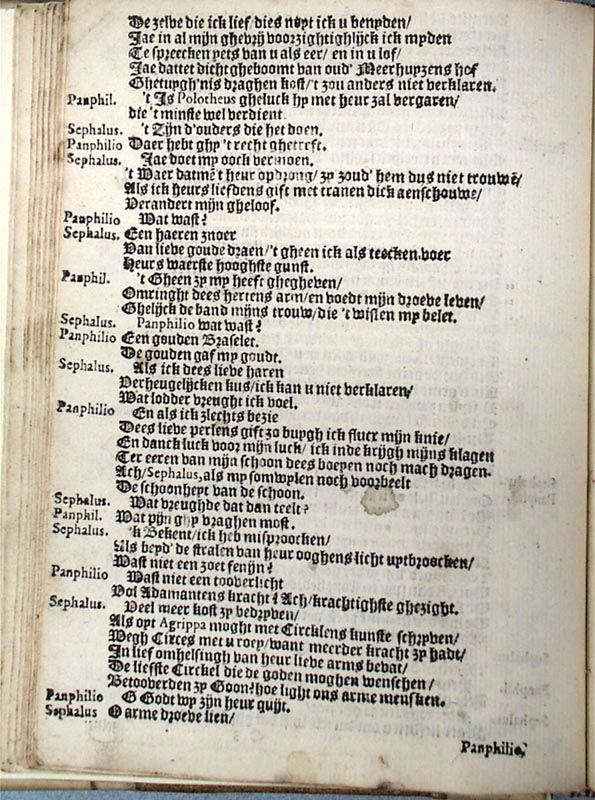 De zelve die ick lief/dies noyt ick u benyden/
Jae in al mijn ghevrij voorzightighlijck ick myden
Te spreecken yets van u als eer/ en in u lof/
Jae dattet dicht gheboomt van oud' Meerhuyzens hof
Ghetuygh'nis draghen kost/'t zou anders niet verklaren.
Panphil. 't Is Polotheus gheluck hy met heur zal vergaren/
die 't minste wel verdient.
Sephalus. 't Zijn d'ouders die het doen.
Panphilio Daer hebt ghy 't recht ghetreft.
Sephalus. Jae doet my oock vermoen.
't Waer datmē't heur opdrong/ zy zoud' hem dus niet trouwē/
Als ick heurs liefdens gift met tranen dick aenschouwe/
Verandert mijn gheloof.
Panphilio Wat wast?
Sephalus. Een haeren snoer
Van lieve goude draen/'t gheen ick als teecken voer
Heurs waerste hooghste gunst.
Panphil. 't Gheen zy my heeft ghegheven/
Omringht dees hertens arm/en voedt mijn droeve leven/
Ghelijck de band mijns trouw/die 't wislen my belet.
Sephalus. Panphilio wat wast?
Panphilio Een gouden Braselet.
De gouden gaf my goudt.
Sephalus. Als ick dees lieve haren
Verheugelijcken kus/ick kan u niet verklaren/
Wat lodder vreught ick voel.
Panphilio En als ick slechts bezie
Dees lieve persens gift zo buygh ick flucx mijn knie/
En danck luck voor mijn luck/ ick inde krijgh mijns klagen
Ter eeren van mijn schoon dees boeyen noch mach dragen.
Ach/Sephalus,als my somwylen noch voorbeelt
De schoonheyt van de schoon.
Sephalus. Wat vreughde dat dan teelt?
Panphil. Wat pijn ghy vraghen most.
Sephalus. 'k Bekent/ick heb misproocken/
Als beyd' de stralen van heur ooghens licht uytbroocken/
Wast niet een zoet fenijn?
Panphilio Wast niet een tooverlicht
Vol Adamantens kracht? Ach/krachtighste ghezight.
Sephalus. Veel meer kost zy bedryven/
Als opt Agrippa moght met Circklens kunste schryven/
Wegh Circes met u roey/want meerder kracht zy hadt/
In lief omhelsingh van heur lieve arms bevat/
De liefste Circkel die de goden moghen wenschen/
Betooverden zy Goon?hoe light ons arme mensken.
Panphilio G Godt wy zijn heur quijt.
Sephalus O arme droeve lien/
Panphilio,